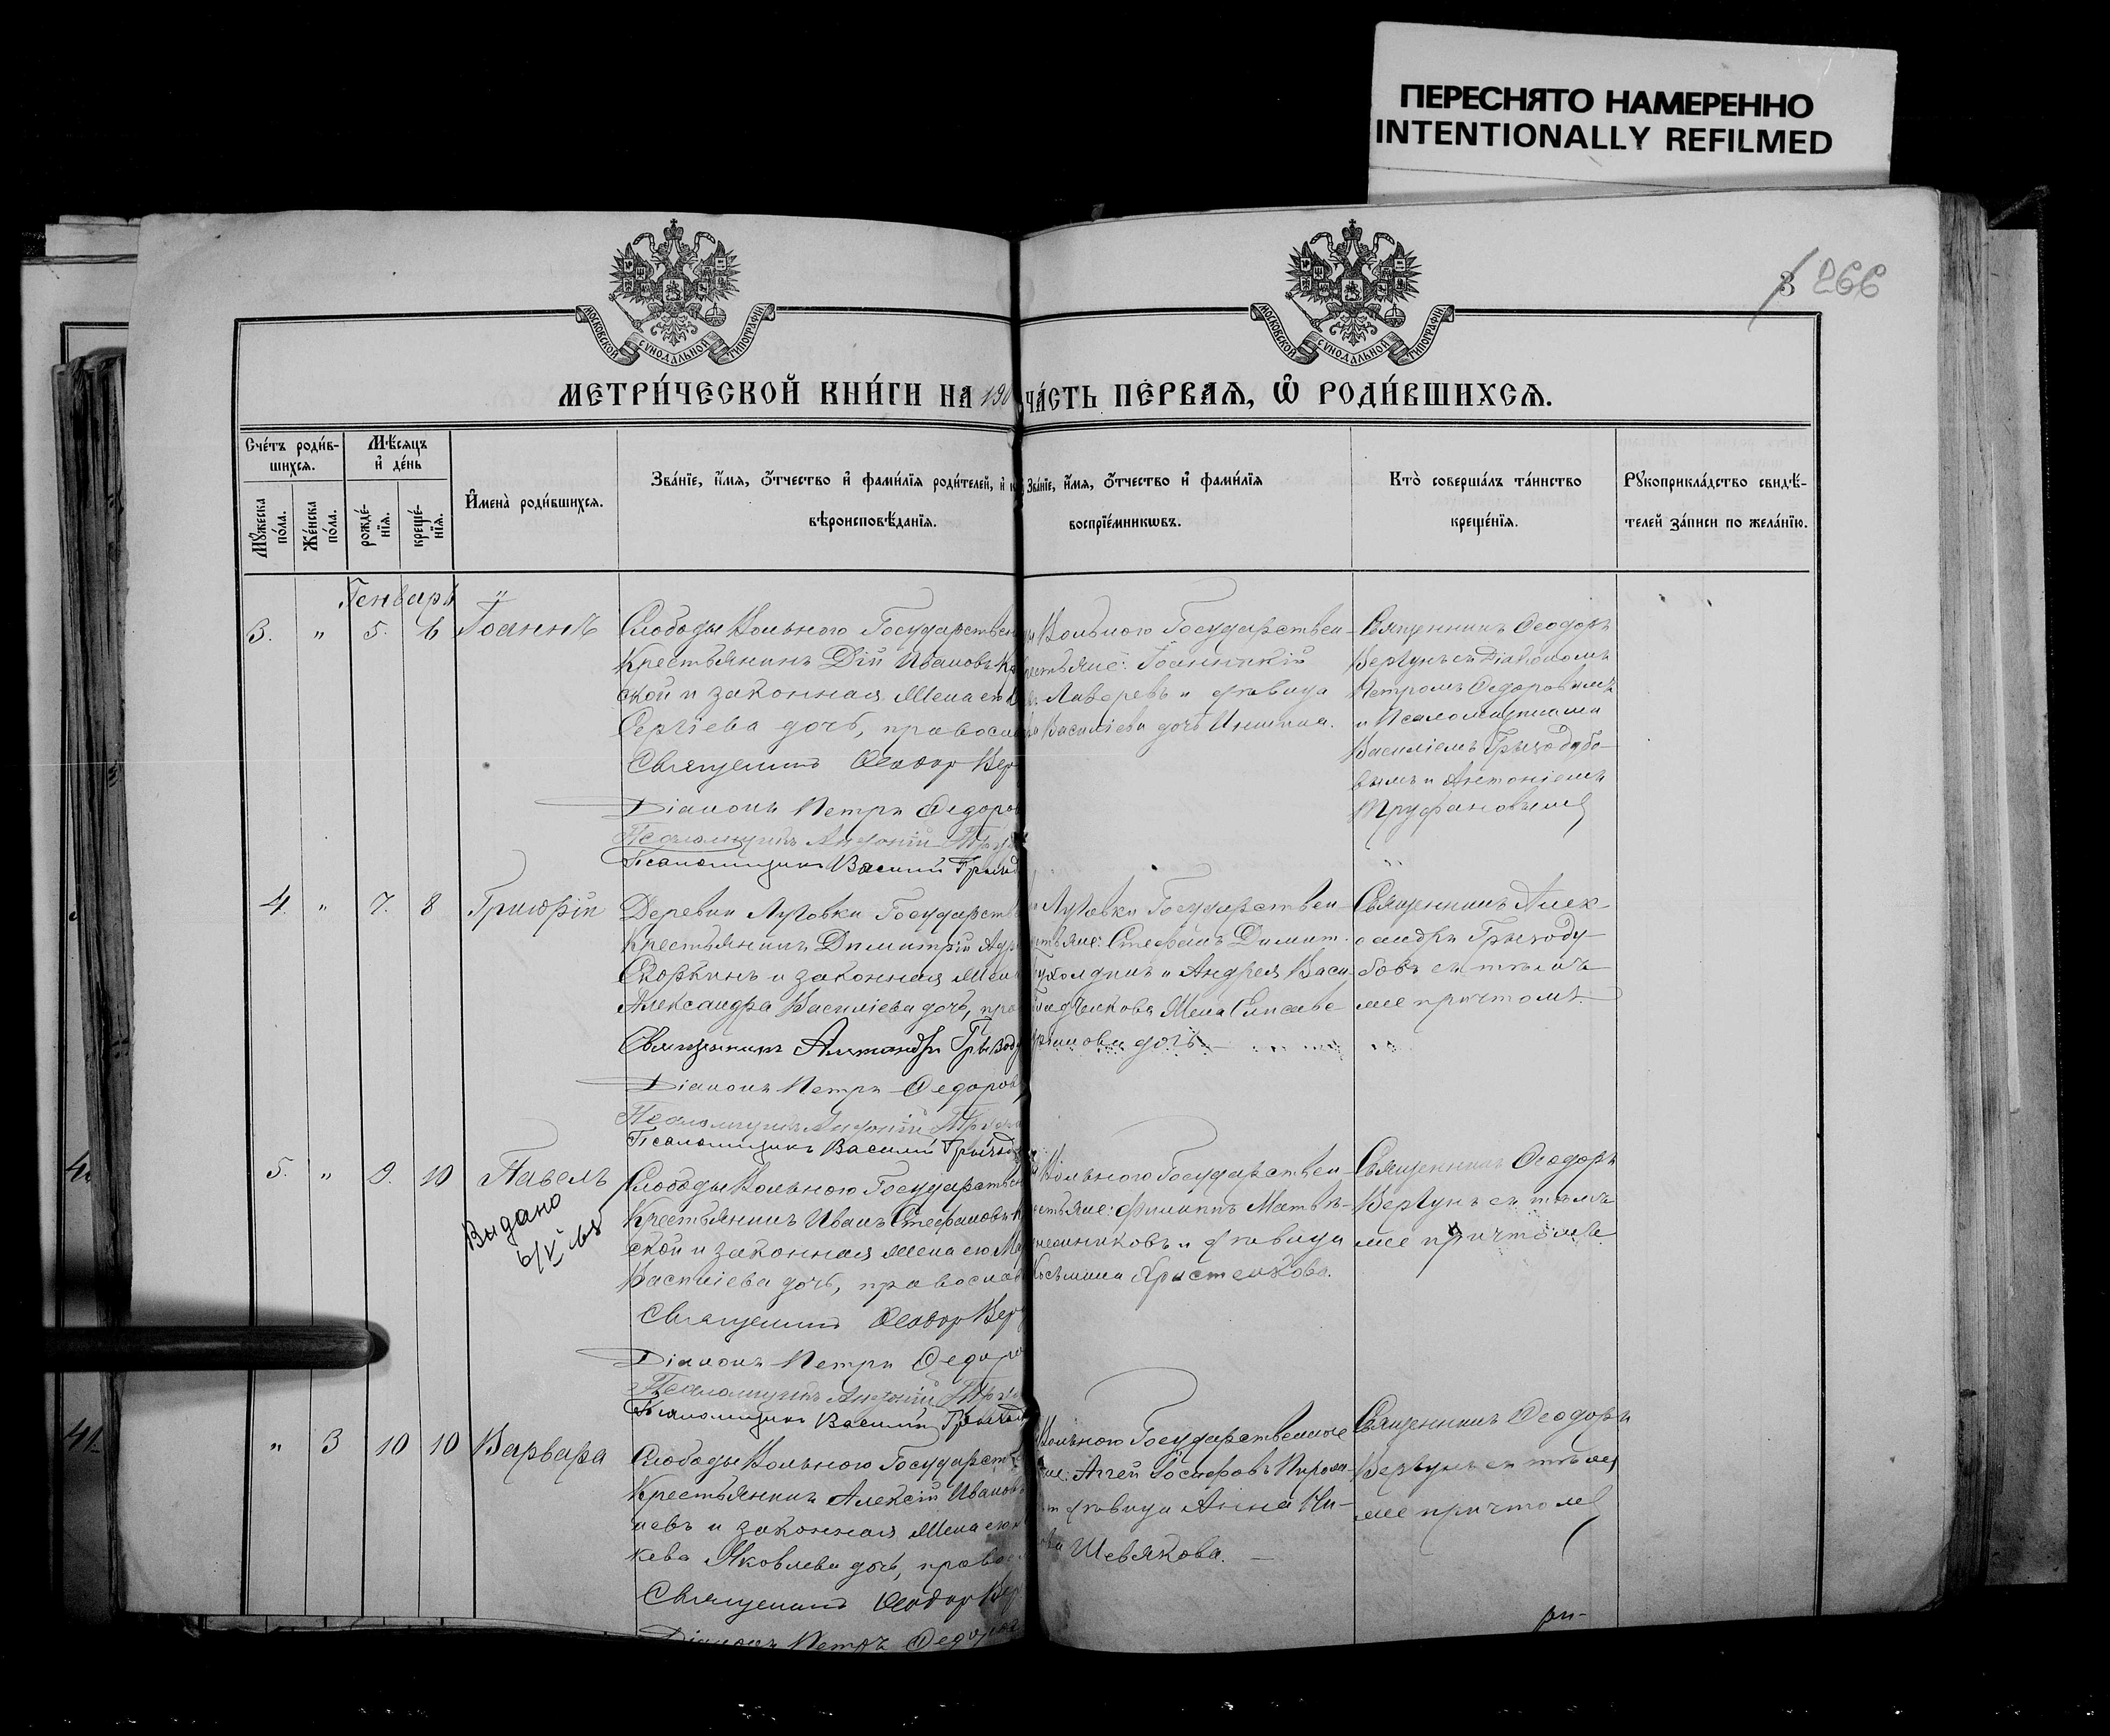 ПЕРЕСНЯТО НАМЕРЕННО
INTENTIONALLY REFILMED
266
МОСКОВСКОЙ СѴНОДАЛЬНОЙ ТИПОГРАФІИ
МОСКОВСКОЙ СѴНОДАЛЬНОЙ ТИПОГРАФІИ
МЕТРИ́ЧЕСКОЙ КНИ́ГИ НА 190
ЧА́СТЬ ПЕ́РВАѦ, Ѡ РОДИ́ВШИХСѦ.
Сче́тъ роди́в-
шихсѧ.
Мꙋ́жеска по́ла.
Же́нска по́ла.
Мѣ́сѧцъ
и де́нь
рожде́-
нїѧ.
креще́-
нїѧ.
И҆мена̀ роди́вшихсѧ.
Зва́нїе, и҆́мѧ, ѻ҆́тчество и҆ фами́лїѧ роди́телей, и҆
вѣроисповѣ́данїѧ.
Зва́нїе, и҆́мѧ, ѻ҆́тчество и҆ фами́лїѧ
воспрїе́мникѡвъ.
Кто̀ соверша́лъ та́инство
креще́нїѧ.
Рꙋкоприкла́дство свидѣ́-
телей за́писи по жела́нїю.
Генварь
3. " 5. 6 Іоаннъ
Слободы Вольного Государствен
Крестьянинъ Дій Ивановъ
ской и законная жена его
Сергіева дочь, правосла
Священникъ Ѳеодор Вер
Діаконъ Петръ Ѳедоров
Псаломщикъ Антоній Тру
Псаломщикъ Василій Грыход
Вольного Государствен-
естьяне: Іоанникій
Лаверевъ и дѣвица
Василіева дочь
Священникъ Ѳеодоръ
Вергунъ съ Діакономъ
Петромъ Ѳедоровымъ
и Псаломщиками
Василіемъ Грыходубо-
вымъ и Антоніемъ
Труфановымъ
4. " 7. 8 Григорій
Деревни Луговки Государств
Крестьянинъ Димитрій
Скоркинъ и законная жен
Александра Василіева дочь, пра
Священникъ Александръ Грыходу
Діаконъ Петръ Ѳедоровъ
Псаломщикъ Антоній Труфа
Псаломщикъ Василій Грыход
Луговки Государствен-
стьяне: Стефанъ Димит-
и Андрея Васи-
жена Елисаве-
дочь
Священникъ Алек-
сандръ Грыходу-
бовъ съ тѣмъ
же причтомъ.
5. " 9. 10 Павелъ
Выдано
Слободы Вольного Государствен
Крестьянинъ Иванъ Стефановъ
ской и законная жена его
Василіева дочь, православ
Священникъ Ѳеодор Верг
Діаконъ Петръ Ѳедоро
Псаломщикъ Антоній Тру
Псаломщикъ Василій Грыход
Вольного Государствен-
естьяне: Филиппъ Матвѣ-
и дѣвица
Христенкова.
Священникъ Ѳеодоръ
Вергунъ съ тѣмъ
же причтомъ
" 3 10 10 Варвара
Слободы Вольного Государст
Крестьянинъ Алексій Иванов
и законная жена его
Яковлева дочь, правос
Священникъ Ѳеодор Вер
Діаконъ Петръ Ѳедоров
Вольного Государственные
Аггей Іосифовъ
дѣвица Анна Ни-
Шевякова.
Священникъ Ѳеодоръ
Вергунъ съ тѣмъ
же причтомъ